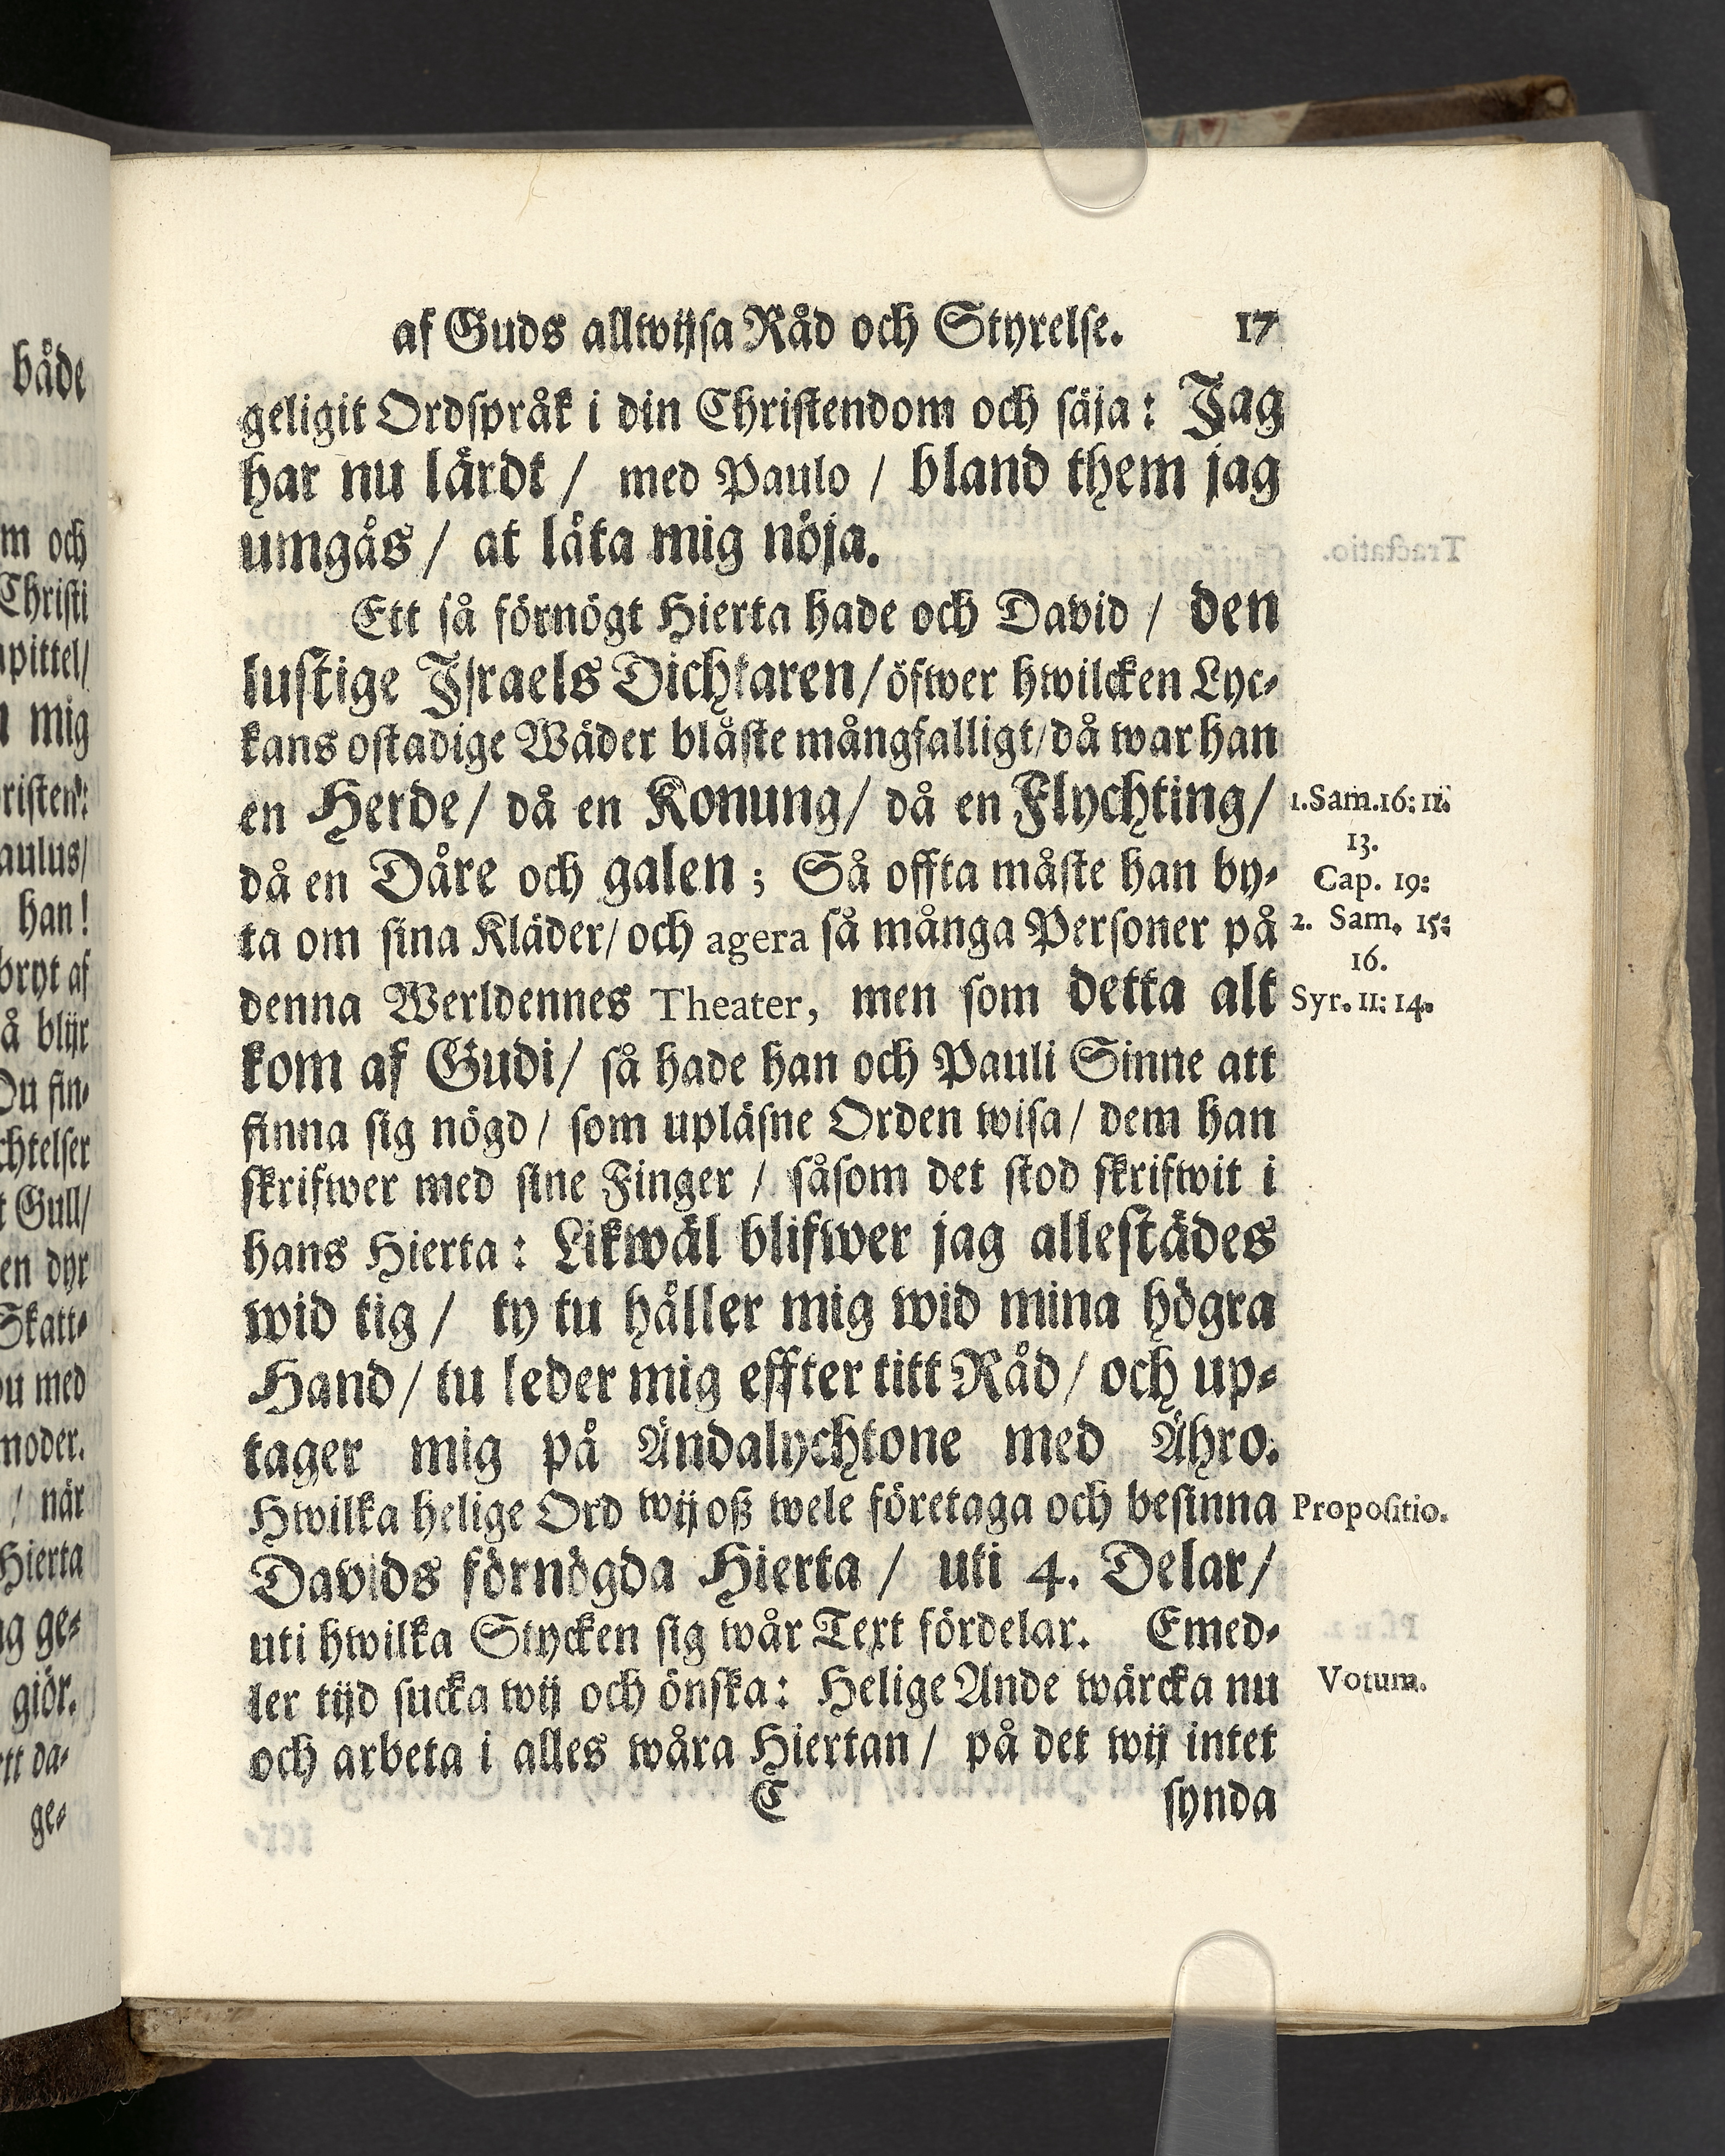 både
m och
Christi
pittel/
mig
risten:
aulus/
han!
bryt af
å blijr
Du fin-
chtelser
Gull/
en dyr
Skatt-
du med
moder.
/ när
Hierta
ge-
giör.
ge-
af Guds allwijsa Råd och Styrelse. 17
geligit Ordspråk i din Christendom och säja: Jag
har nu lärdt / med Paulo / bland them jag
umgås / at låta mig nöja.
Ett så förnögt Hierta hade och David / den
lustige Israels Dichtaren/ öfwer hwilcken Lyc-
kans ostadige Wäder blåste mångfalligt/ då war han
en Herde/ då en Konung/ då en Flychting/
1.Sam.16: 11.
13.
då en Dåre och galen; Så offta måste han by-
Cap. 19:
ta om sina Kläder/ och agera så många Personer på
2. Sam. 15:
16.
denna Werldennes Theater, men som detta alt
Syr. 11: 14.
kom af Gudi/ så hade han och Pauli Sinne att
finna sig nögd/ som upläsne Orden wisa/ dem han
skrifwer med sine Finger / såsom det stod skrifwit i
hans Hierta: Likwäl blifwer jag allestädes
wid tig / ty tu håller mig wid mina högra
Hand/ tu leder mig effter titt Råd/ och up-
tager mig på Ändalychtone med Ähro.
Hwilka helige Ord wij oß wele företaga och besinna
Propositio.
Davids förnögda Hierta / uti 4. Delar/
uti hwilka Stycken sig wår Text fördelar. Emed-
ler tijd sucka wij och önska: Helige Ande wärcka nu
Votum.
och arbeta i alles wåra Hiertan/ på det wij intet
C synda